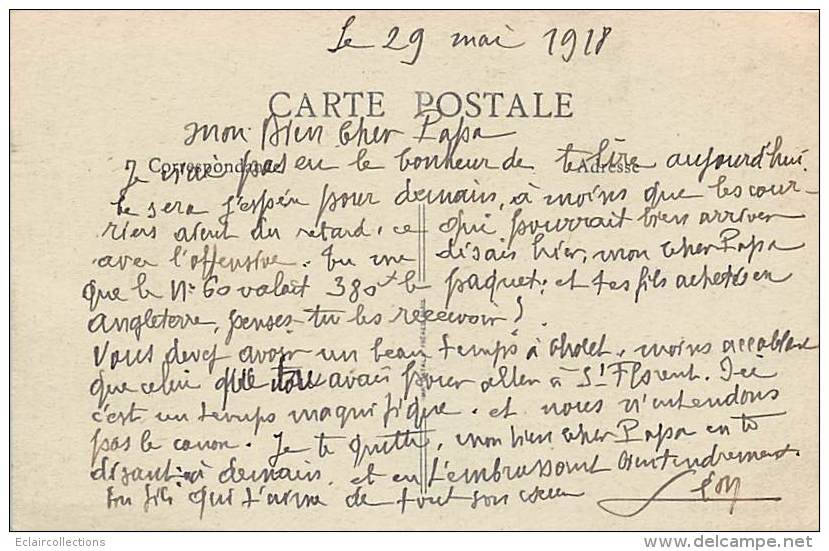 Le 29 mai 1918
CARTE POSTALE
Mon bien cher Papa
Correspondance Adresse
Je n'ai pas eu le bonheur de te lire aujourd'hui.
ce sera j'espère pour demain, à moins que les cour-
riers aient du retard, ce qui pourrait bien arriver
avec l'offensive. tu me disais hier, mon cher Papa
que le N° 60 valait 380 le paquet; et tes fils achetés en
angleterre, penses-tu les recevoir?
Vous devez avoir un beau temps à Cholet, moins accablant
que celui que avais pour aller à St Florent. Ici
c'est un temps magnifique. et nous n'entendons
pas le canon. Je te quitte, mon bien cher Papa en te
disant: à demain. et en t'embrassant bien tendrement.
ton fils qui t'aime de tout son cœur
Eclaircollections
delcampe.net